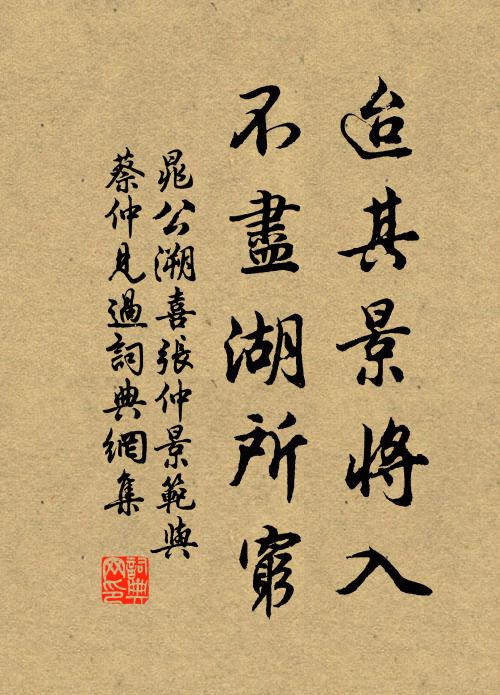 迨其景將入
不盡湖所窮
晁公溯喜張仲景範與
蔡仲見過詞典網集
詞典
网印